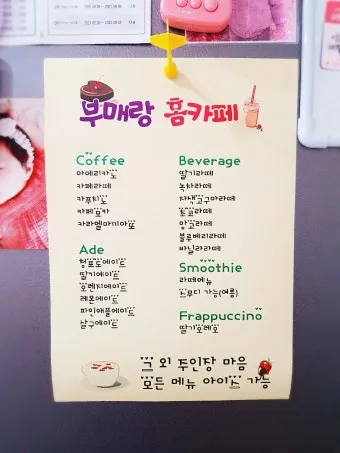 부매랑 홈카페
Coffee
아메리카노
카페라떼
카푸치노
카페모카
카라멜마끼아또
Ade
청포도에이드
딸기에이드
오렌지에이드
레몬에이드
파인애플에이드
자몽에이드
Beverage
딸기라떼
녹차라떼
자색고구마라떼
초코라떼
망고라떼
블루베리라떼
바닐라라떼
Smoothie
라떼메뉴
스무디 가능(여름)
Frappuccino
딸기오레오
그 외 주인장 마음
모든 메뉴 아이스 가능